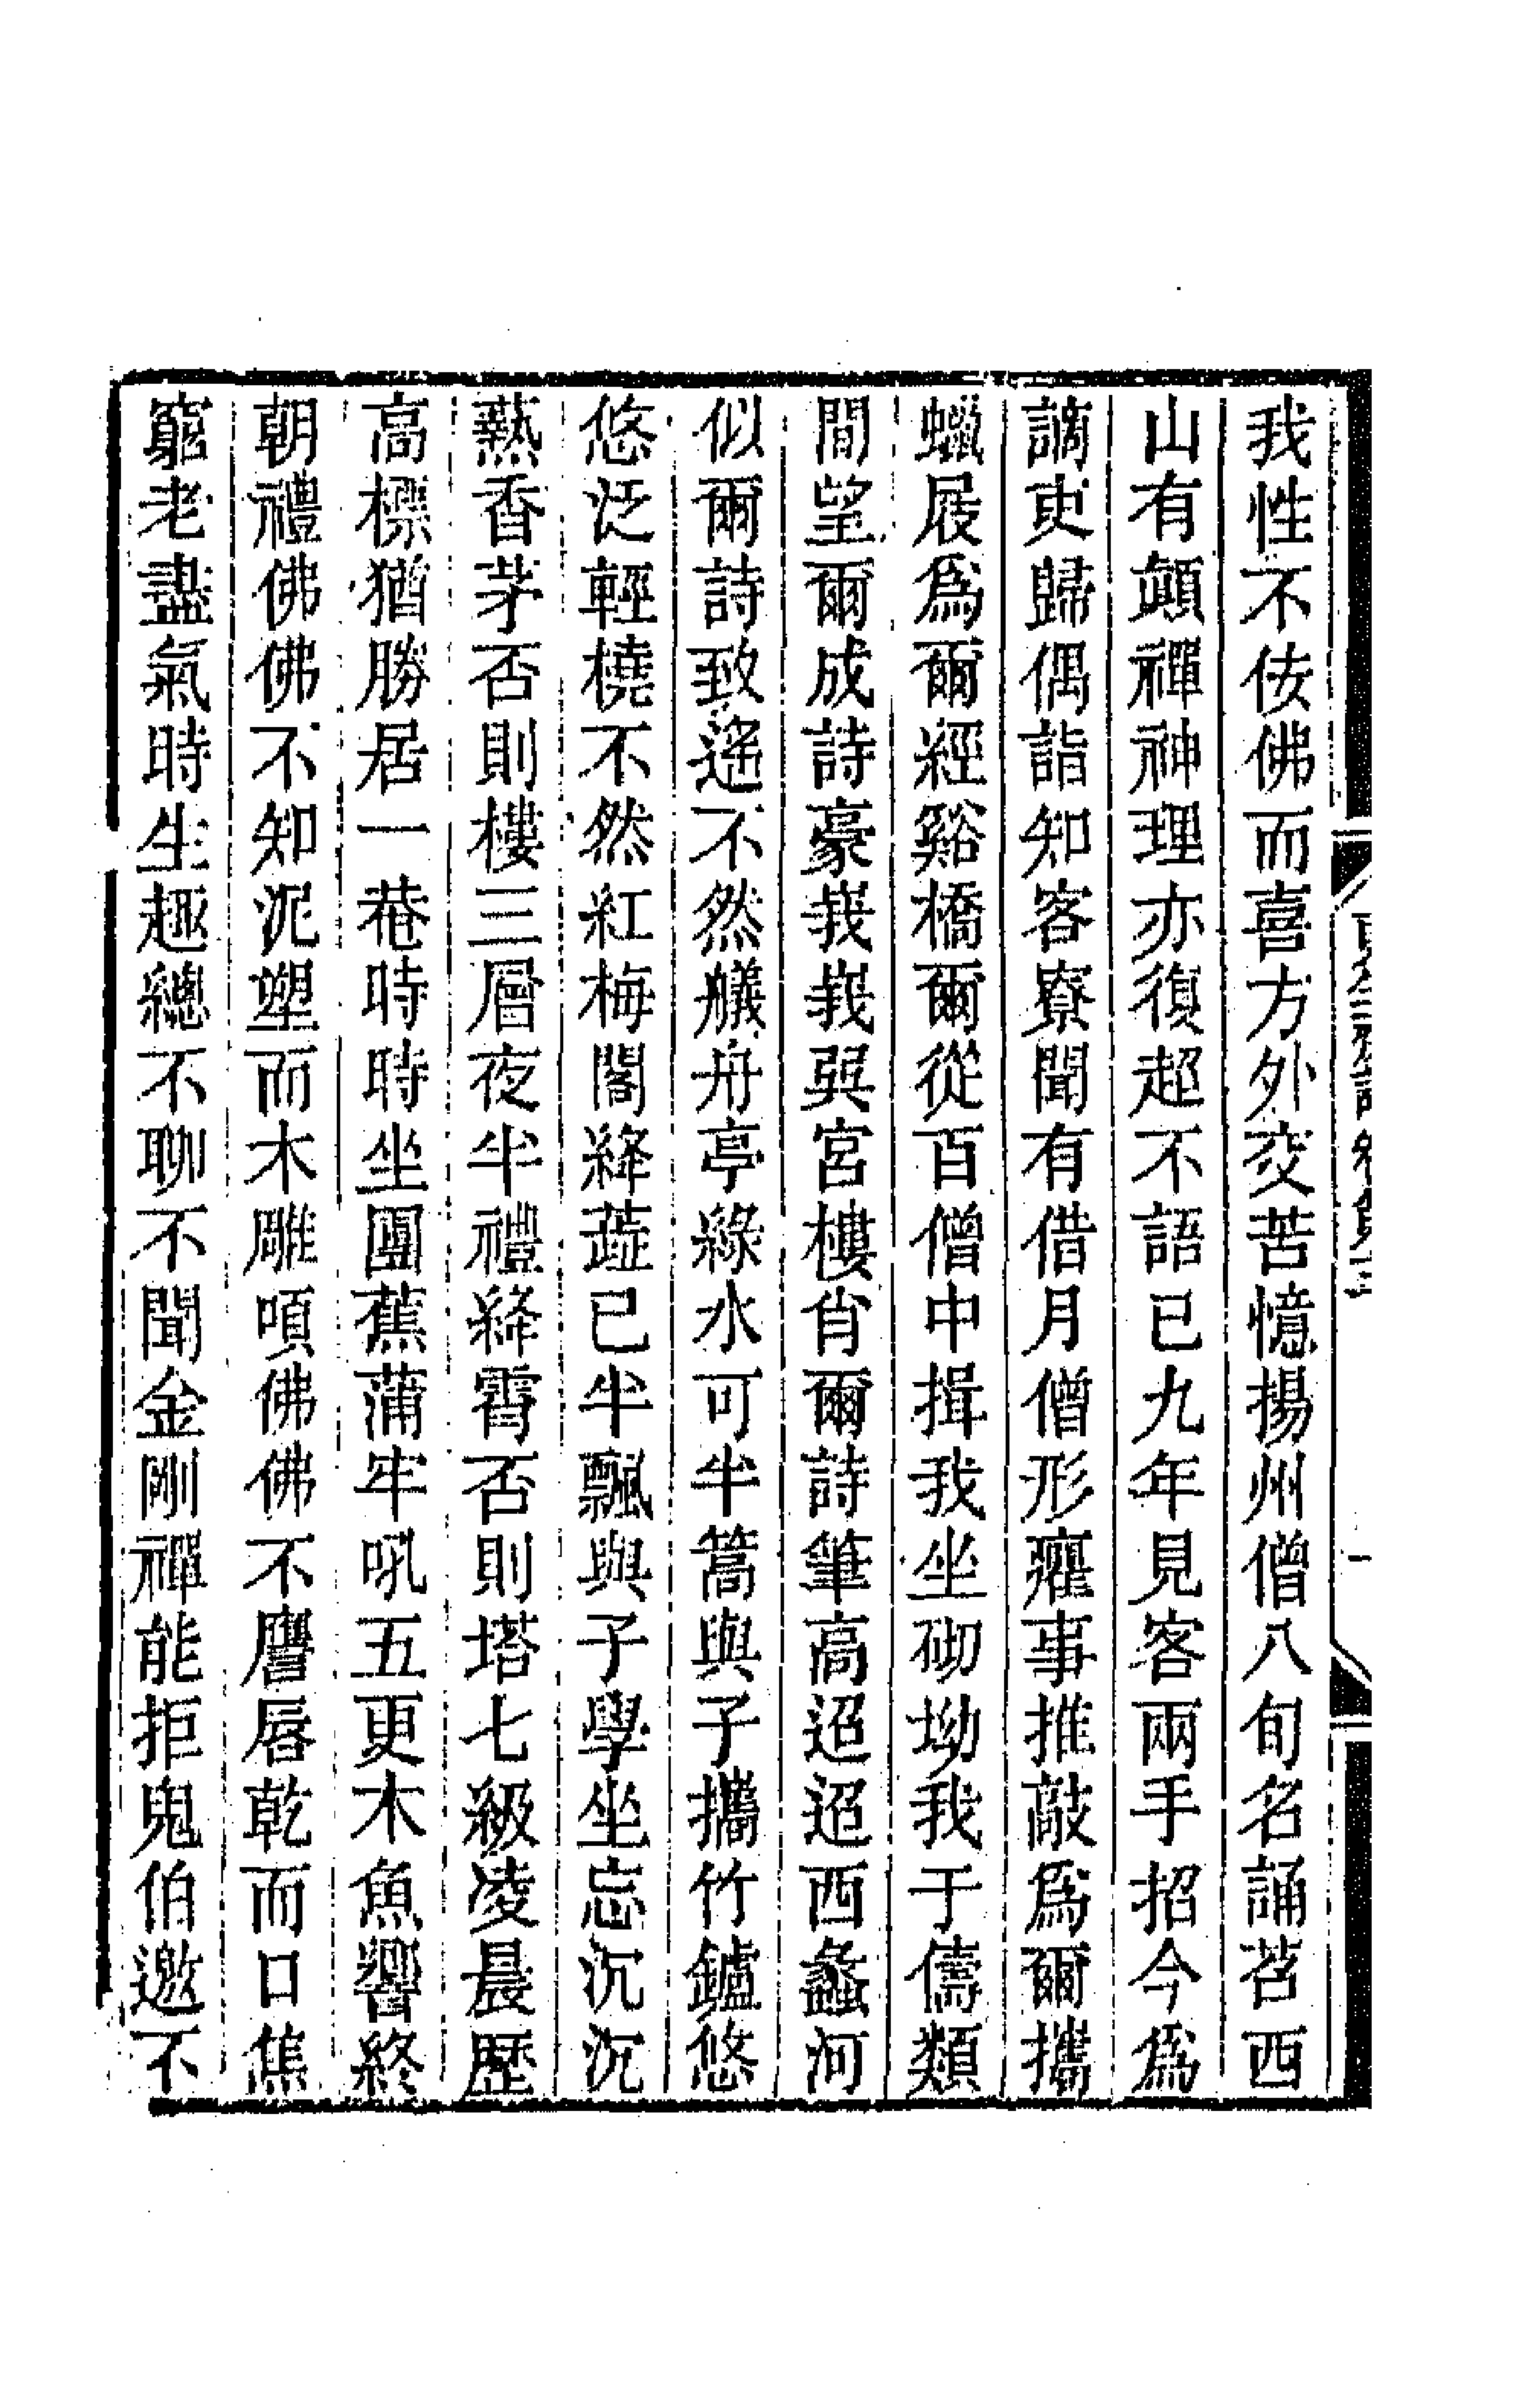 我性不佞佛而喜方外交苦憶揚州僧八旬名誦苕西
山有顛禪神理亦復超不語已九年見客兩手招今為
謫吏歸偶詣知客寮聞有借月僧形癯事推敲為爾攜
蠟屐為爾經谿橋爾從百僧中揖我坐砌坳我于儔類
間望爾成詩豪峩峩吳宮樓肖爾詩筆高迢迢西蠡河
似爾詩致遙不然艤舟亭綠水可半篙與子攜竹鑪悠
悠泛輕橈不然紅梅閣絳蕋已半飄與子學坐忘沉沉
爇香茅否則樓三層夜半禮絳霄否則塔七級凌晨歷
高標猶勝居一菴時時坐團蕉蒲牢吼五更木魚響終
朝禮佛佛不知泥塑而木雕嗊佛佛不譍唇乾而口焦
窮老盡氣時生趣總不聊不聞金剛禪能拒鬼伯邀不